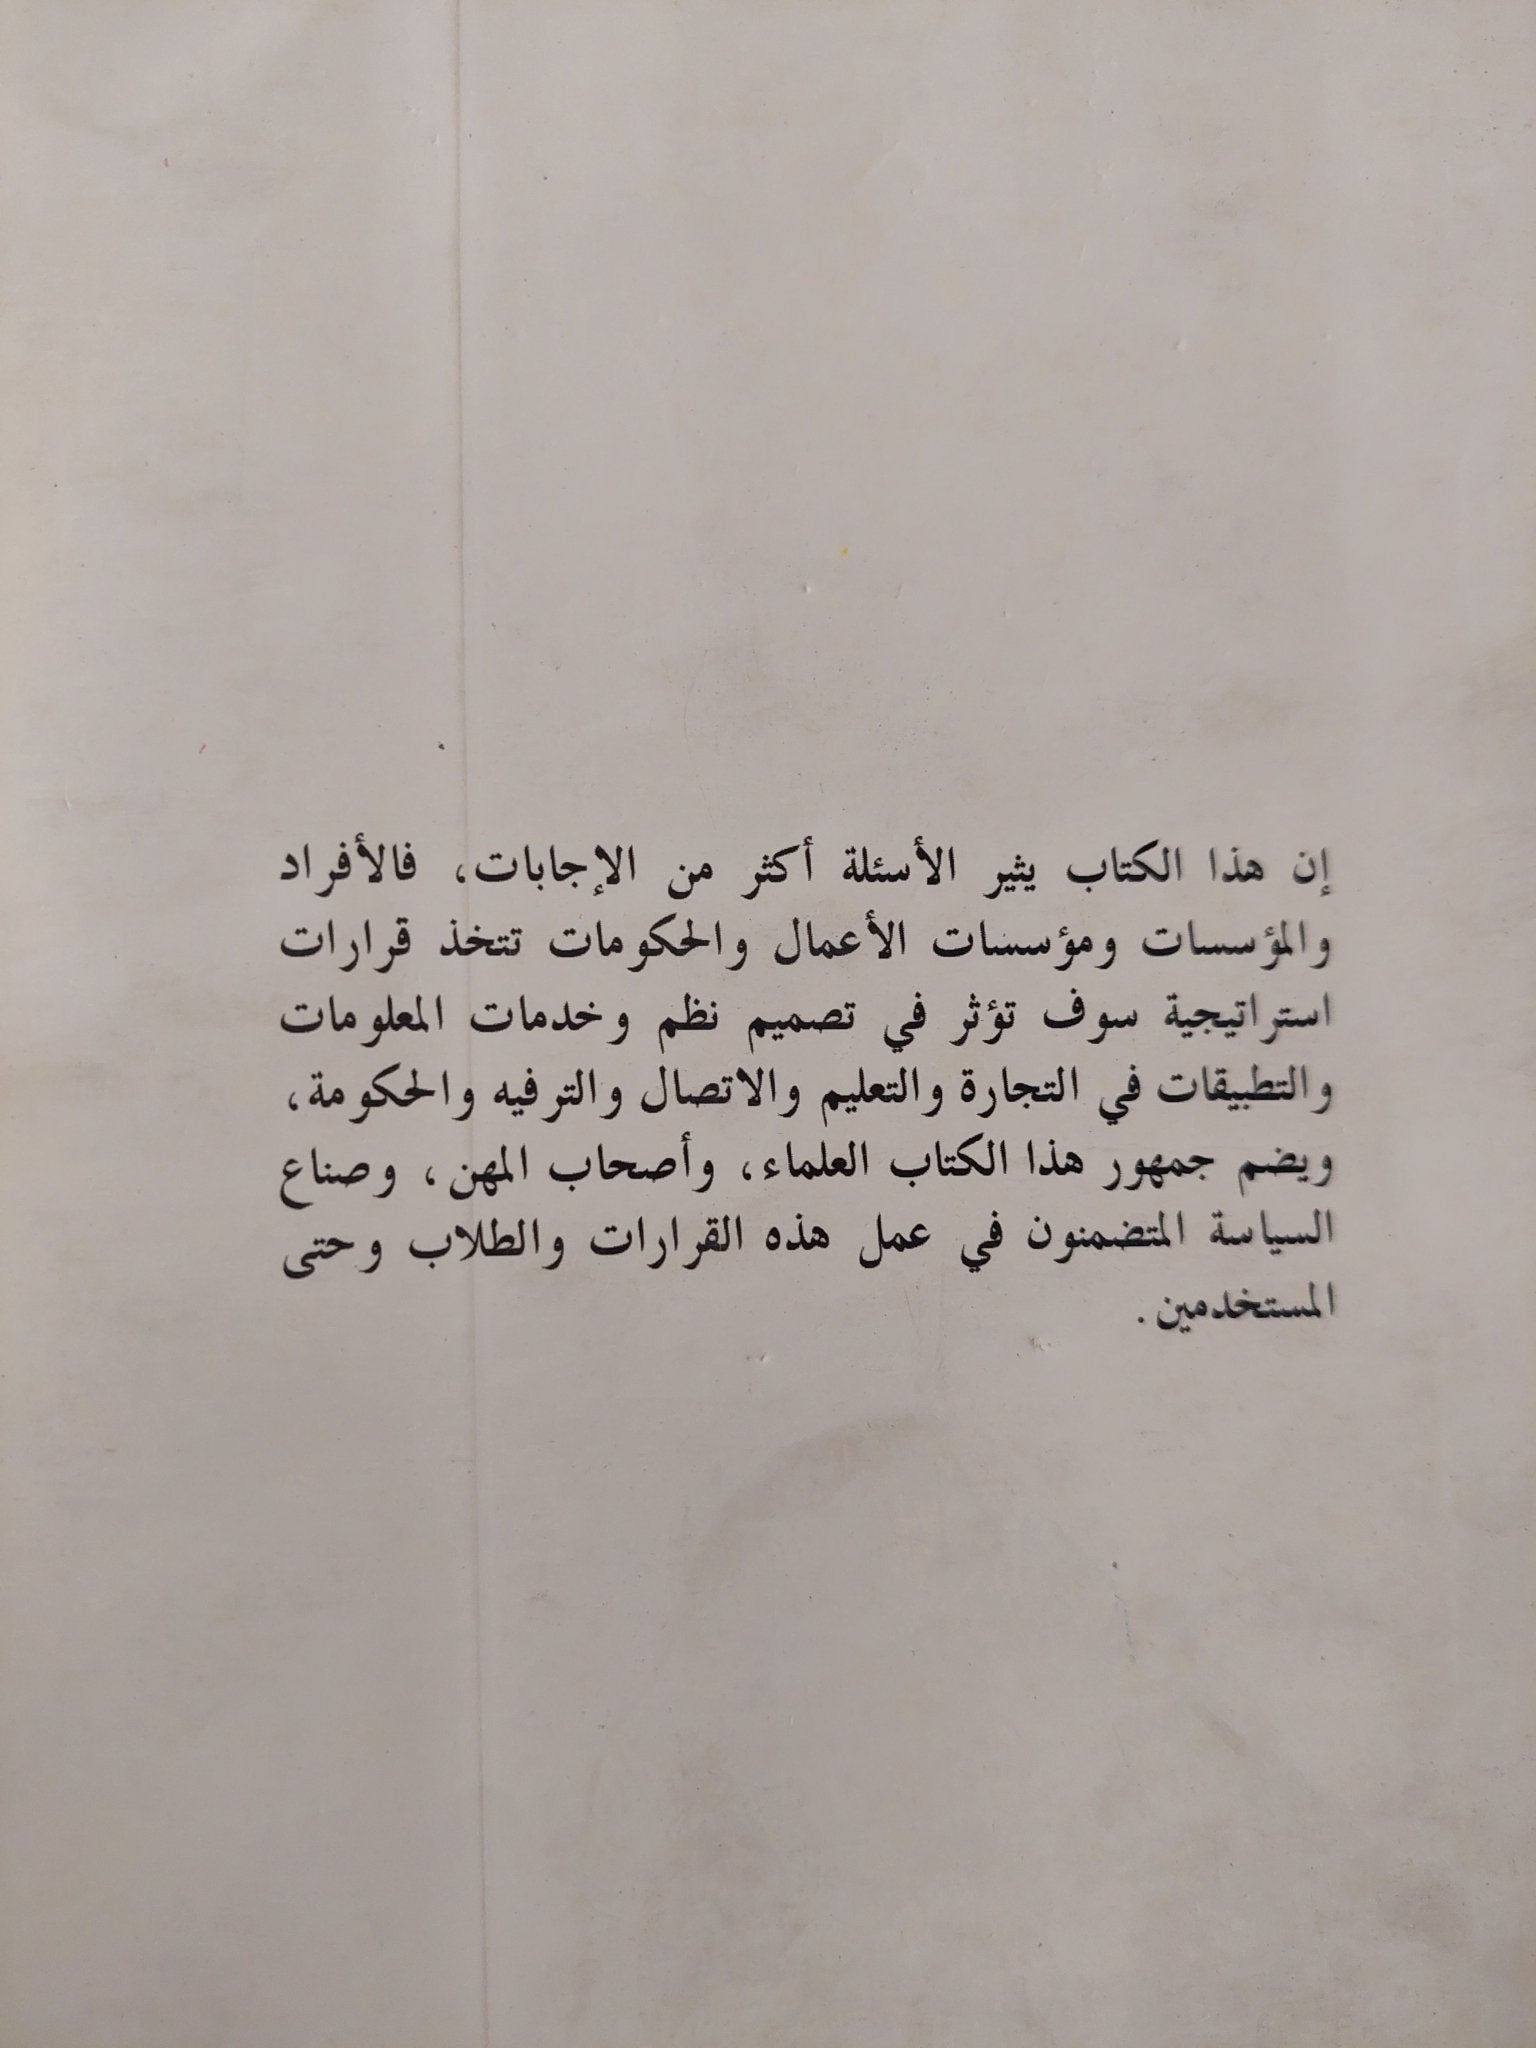 إن هذا الكتاب يثير الأسئلة أكثر من الإجابات، فالأفراد
والمؤسسات ومؤسسات الأعمال والحكومات تتخذ قرارات
استراتيجية سوف تؤثر في تصميم نظم وخدمات المعلومات
والتطبيقات في التجارة والتعليم والاتصال والترفيه والحكومة،
ويضم جمهور هذا الكتاب العلماء، وأصحاب المهن، وصناع
السياسة المتضمنون في عمل هذه القرارات والطلاب وحتى
المستخدمين.